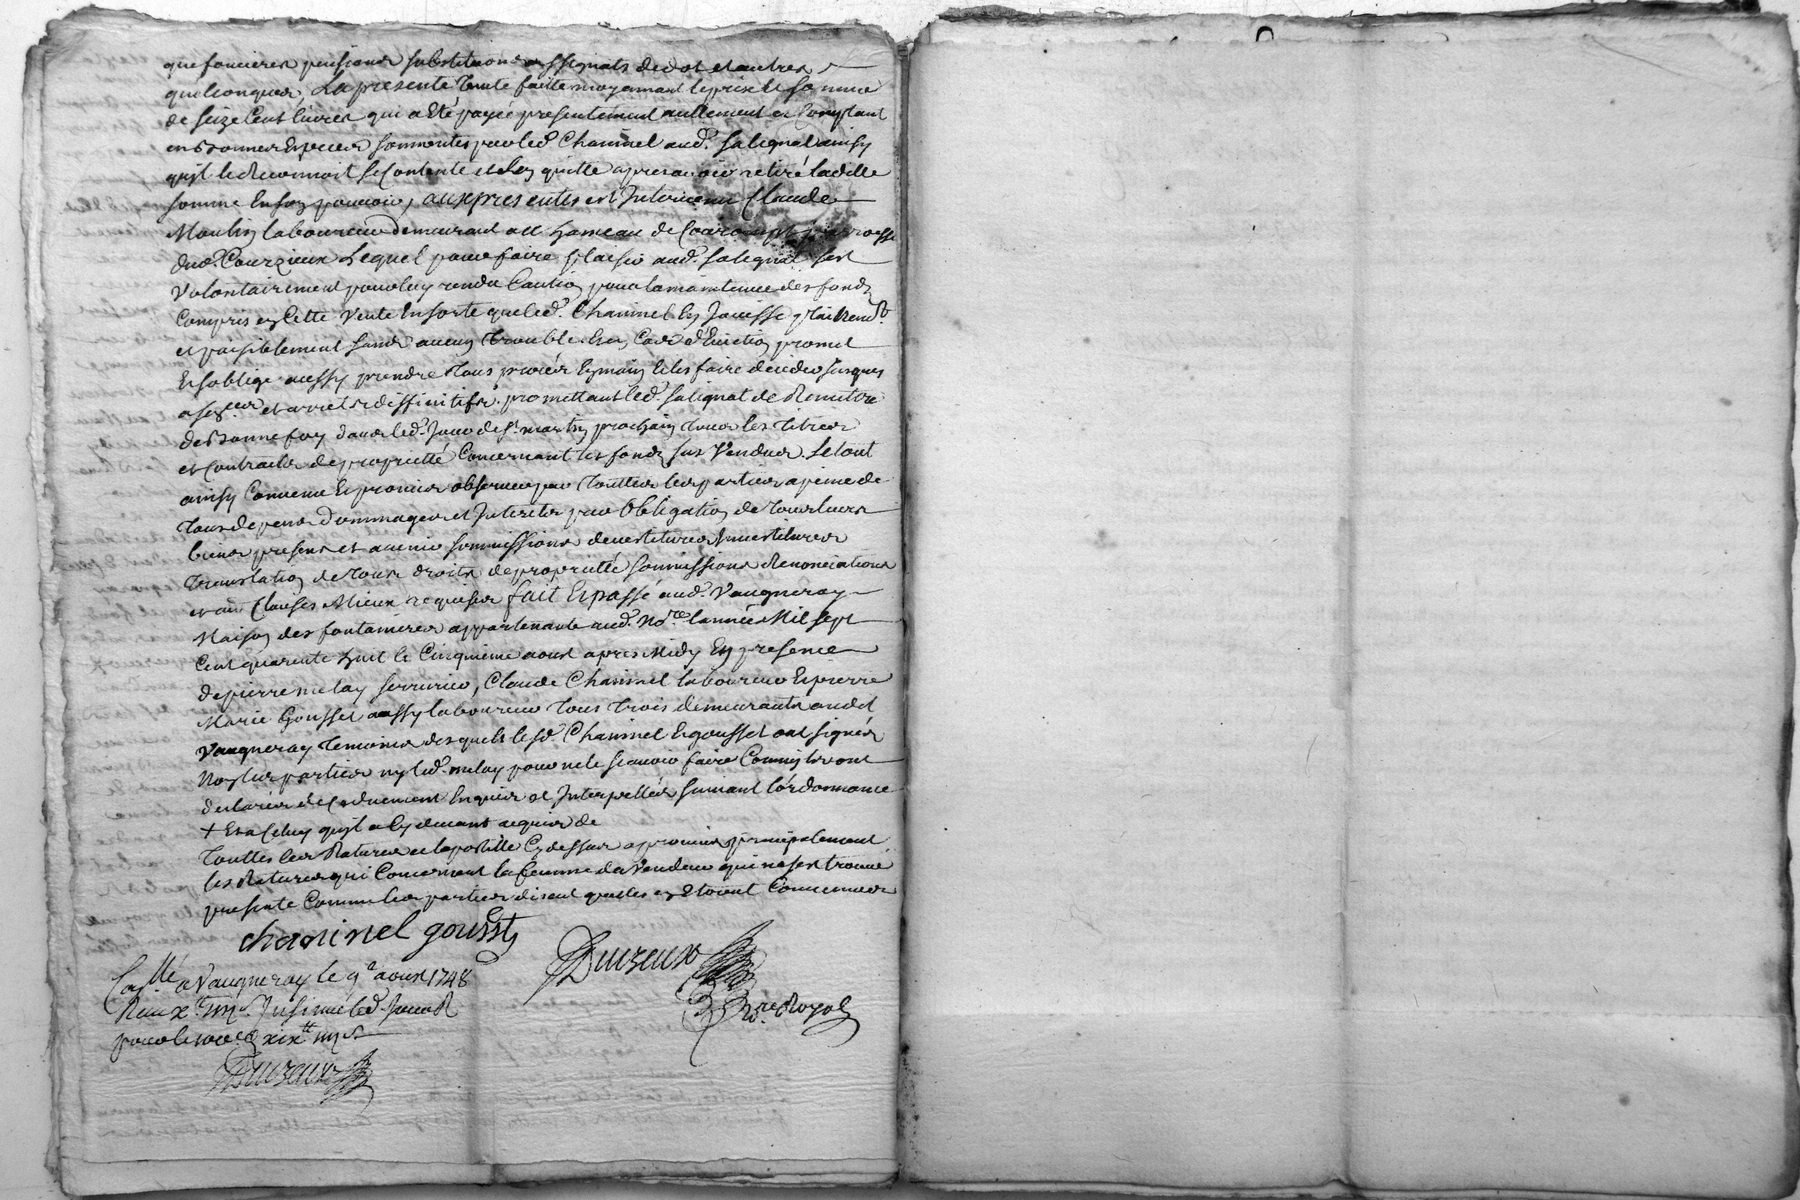 que foncieres pensions substitutions assignats de dot et autres
quelconques, La presente vente faitte moyennant le prix et somme
de seize cent livres qui a Eté payée presentement reellement et Comptant
en bonnes Especes sonnantes par led. Chaninel aud. salignat ainsy
qu'il le Reconnoit se Contente et len quitte apres avoir retiré ladite
somme En son pouvoir, aux presentes est Intervenu Claude
Moulin laboureur demeurant au hameau de parroisse
dud. Courzieux Lequel pour faire plaisir aud. salignat sest
Volontairement pour luy rendu Caution pour la maintenue des fonds
Compris en Cette Vente En sorte que led. Chaninel En Jouisse plainemt.
et paisiblement sans aucun trouble. En Cas d'Eviction promet
Et soblige aussy prendre tous procés En main Et les faire decider jusques
a sence et arrets diffinitifs. promettant led. salignat de Remettre
de bonne foy dans led. Jour de st. martin prochain tous les titres
et Contracts de proprietté Concernant les fonds sus Vendus. Le tout
ainsy Convenu Et promis observer par touttes les parties a peine de
tous depens dommages et Interets par Obligation de tous leurs
biens presens et avenir sommissions devestitures Investitures
translation de tous droits de proprietté sommissions Renonciations
et aut. Clauses Mieux requises fait Et passé aud. Vaugneray
Maison des fontanieres appartenante aud. Nore. lannée Mil sept
Cent quarente huit le Cinquieme aoust apres Midy En presence
de pierre melay serrurier, Claude Chaninel laboureur Et pierre
Marie Gousset aussy laboureur tous trois demeurants audit
Vaugneray temoins desquels le sd. Chaninel Et gousset ont signés
Non les parties ny led. melay pour ne le sçavoir faire Comm'ils ont
declarés de Ce duement Enquis et Interpellés suivant lordonnance
+ Et a Celuy qu'il a Cy devant acquis de
touttes les Ratures et lapostille Cy dessus approuvés principalement
les Ratures qui Concernent la femme du Vendeur qui ne sest trouvé
presente Comme les parties disent quelles en Etoient Convenues
chaninel gousset
Duzeux
Nore. Royal
Conllé a Vaugneray le 9e aoust 1748
R
pour le
Duzeux